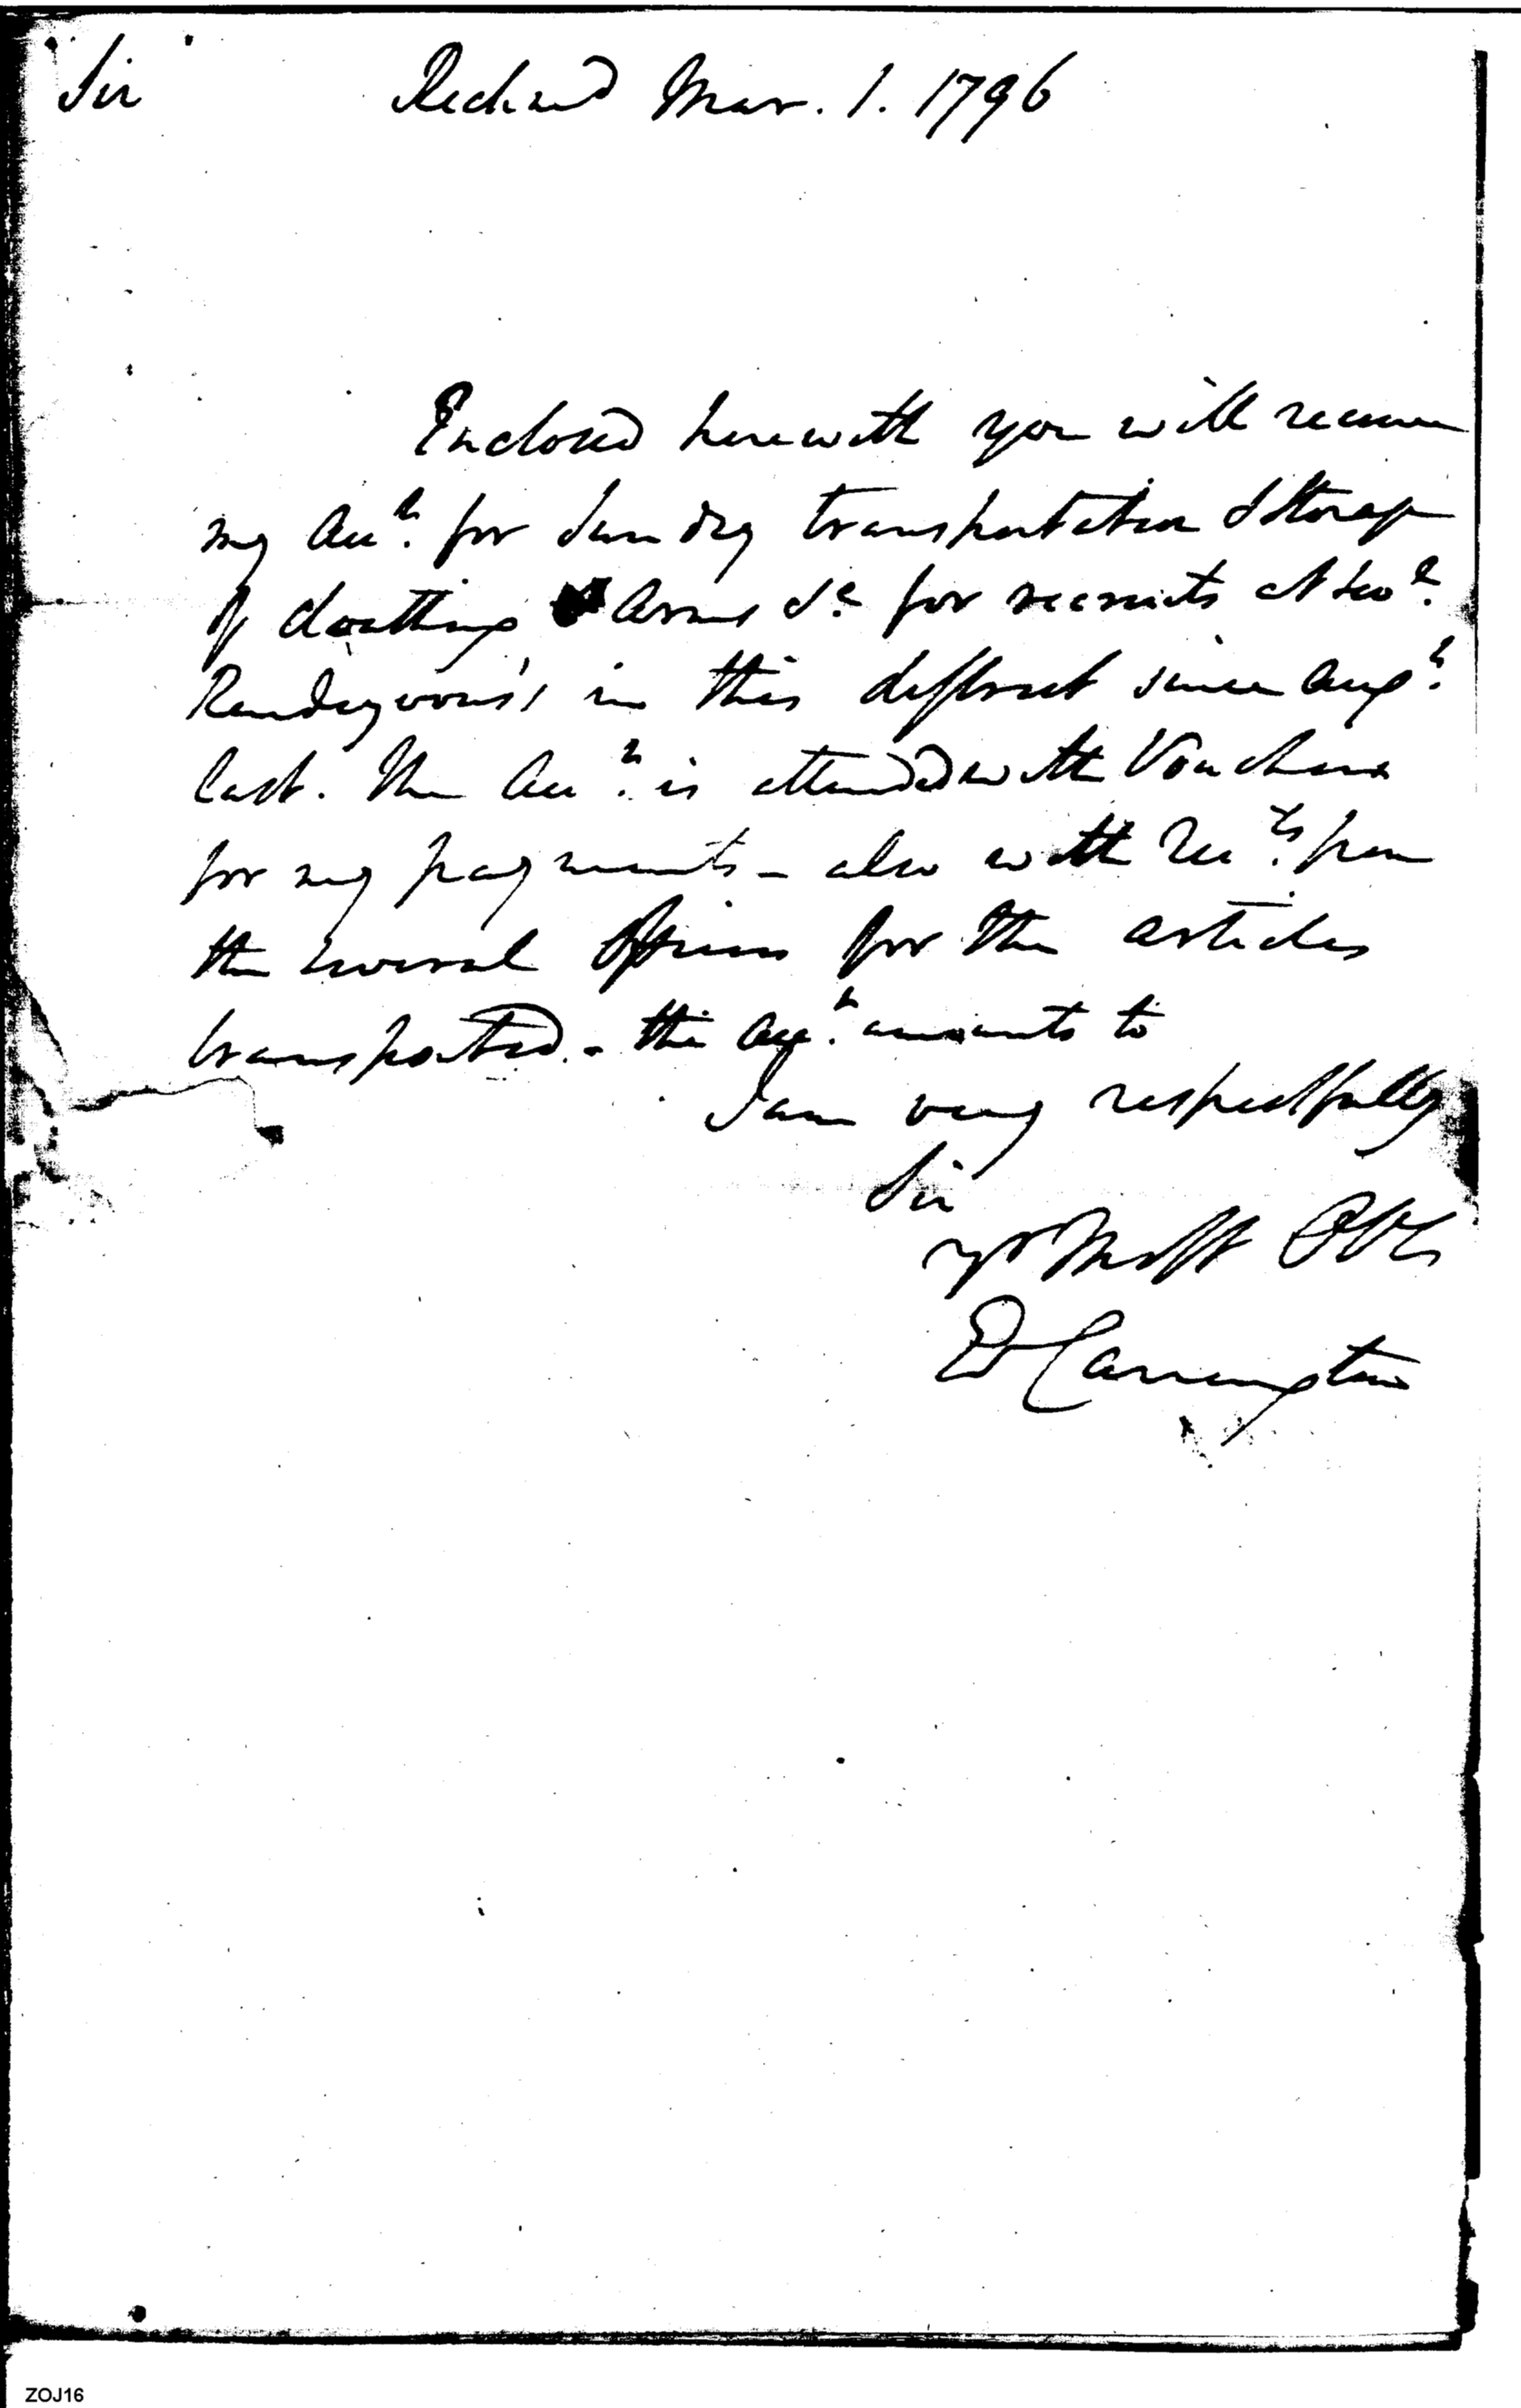 Sir Richmd Mar. 1. 1796
Enclosed herewith you will receive
my Acct. for Sundry transportation & Storage
of cloathing Arms &c for recruits at sevl.
Rendezvous's in this district since Augt.
last. The Acct. is attended with Vouchers
for my payments - also with Recrs. from
the several Officers for the articles
transported. - the Acct. amounts to
I am very respectfully
Sir
yr Most Obt
Ed Carrington
ZOJ16